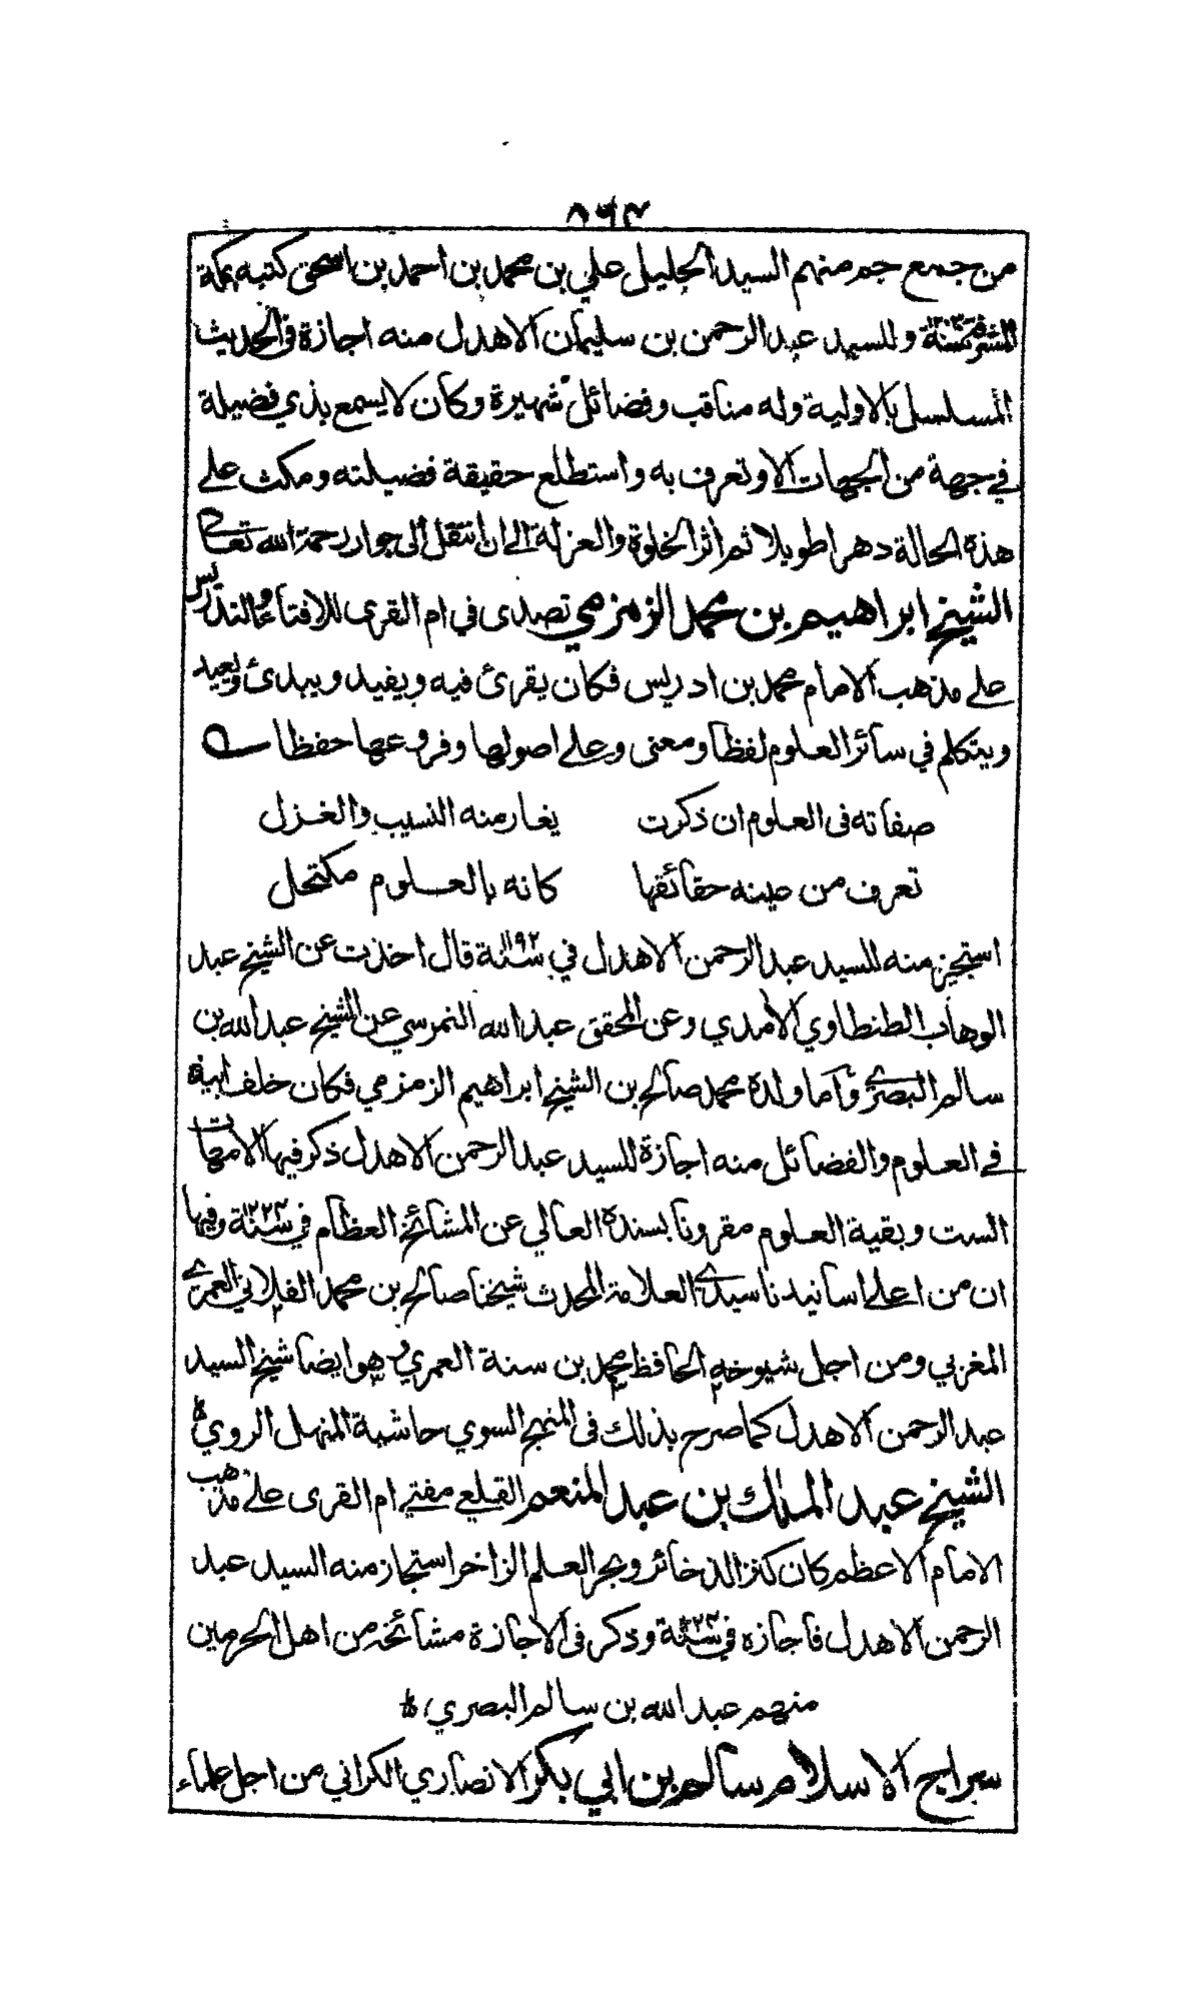 ٨٦٣
من جمع جم منهم السيد الجليل علي بن محمد بن احمد بن اسحق كتبه بمكة
المشرفة سنة وللسيد عبد الرحمن بن سليمان الاهدل منه اجازة في الحديث
المسلسل بالاولية وله مناقب وفضائل شهيرة وكان لا يسمع بذي فضيلة
في جهة من الجهات الا وتعرف به واستطلع حقيقة فضيلته ومكث على
هذه الحالة دهرا طويلا ثم اثر الخلوة والعزلة الى ان انتقل الى جوار رحمة الله تعالى
الشيخ ابراهيم بن محمد الزمزمي تصدى في ام القرى للافتاء والتدريس
على مذهب الامام محمد بن ادريس فكان يقرئ فيه ويفيد ويبدئ ويعيد
ويتكلم في سائر العلوم لفظا ومعنى وعلى اصولها وفروعها حفظا
صفاته في العلوم ان ذكرت يغار منه النسيب والغزل
تعرف من عينه حقائقها كانه بالعلوم مكتحل
استجيز منه للسيد عبد الرحمن الاهدل في سنة ١١٩٢ قال اخذت عن الشيخ عبد
الوهاب الطنطاوي الاحمدي وعن المحقق عبد الله النمرسي عن الشيخ عبد الله بن
سالم البصري واما ولده محمد صالح بن الشيخ ابراهيم الزمزمي فكان خلف ابيه
في العلوم والفضائل منه اجازة للسيد عبد الرحمن الاهدل ذكر فيها الامهات
الست وبقية العلوم مقرونا بسنده العالي عن المشائخ العظام في سنة ١٢٢٣ وفيها
ان من اعلى اسانيدنا سيدي العلامة المحدث شيخنا صالح بن محمد الفلاني العمري
المغربي ومن اجل شيوخه الحافظ محمد بن سنة العمري وهو ايضا شيخ السيد
عبد الرحمن الاهدل كما صرح بذلك في المنهج السوي حاشية المنهل الروي ه
الشيخ عبد الملك بن عبد المنعم القلعي مفتي ام القرى على مذهب
الامام الاعظم كان كنز الذخائر وبحر العلم الزاخر استجاز منه السيد عبد
الرحمن الاهدل فاجازه في سنة وذكر في الاجازة مشائخه من اهل الحرمين
منهم عبد الله بن سالم البصري ه
سراج الاسلام سالم بن ابي بكر الانصاري الكراني من اجل علماء